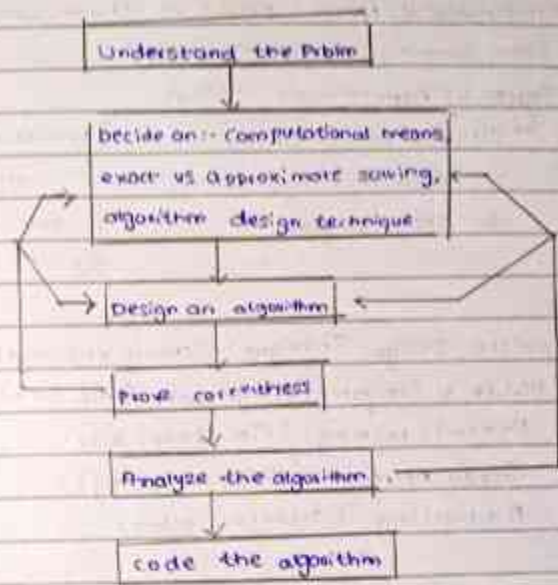 Understand the Prblm
Decide on:- Computational means,
exact vs approximate solving,
algorithm design technique
Design an algorithm
Prove correctness
Analyze the algorithm
Code the algorithm